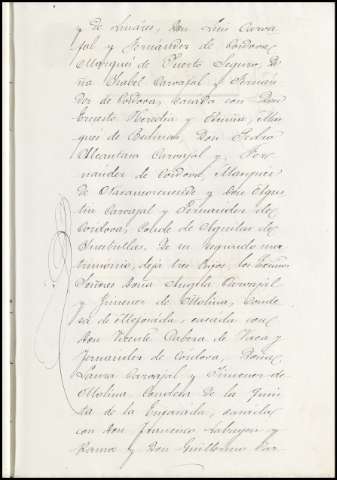 y de Linares, Don Luis Carva-
jal y Fernández de Córdova,
Marqués de Puerto Seguro, Do-
ña Isabel Carvajal y Fernán-
dez de Córdova, casada con Don
Ernesto Heredia y Marqu
qués de Bedmar, Don Pedro
Alcántara Carvajal y Fer-
nández de Córdova, Marqués
de Navamorcuende y Don Agus-
tín Carvajal y Fernández de
Córdova, Conde de Aguilar de
Inestrillas. De su segundo ma-
trimonio, deja tres hijos los Excmos
Señores Doña Angela Carvajal
y Jimenez de Molina, Conde-
sa de Mejorada, casada con
Don Vicente Cabeza de Vaca y
Fernández de Córdova, Doña
Laura Carvajal y Jimenez de
Molina Condesa de la Quin-
ta de la Enjarada, casada
con Don Francisco y
y Don Guillermo Car-